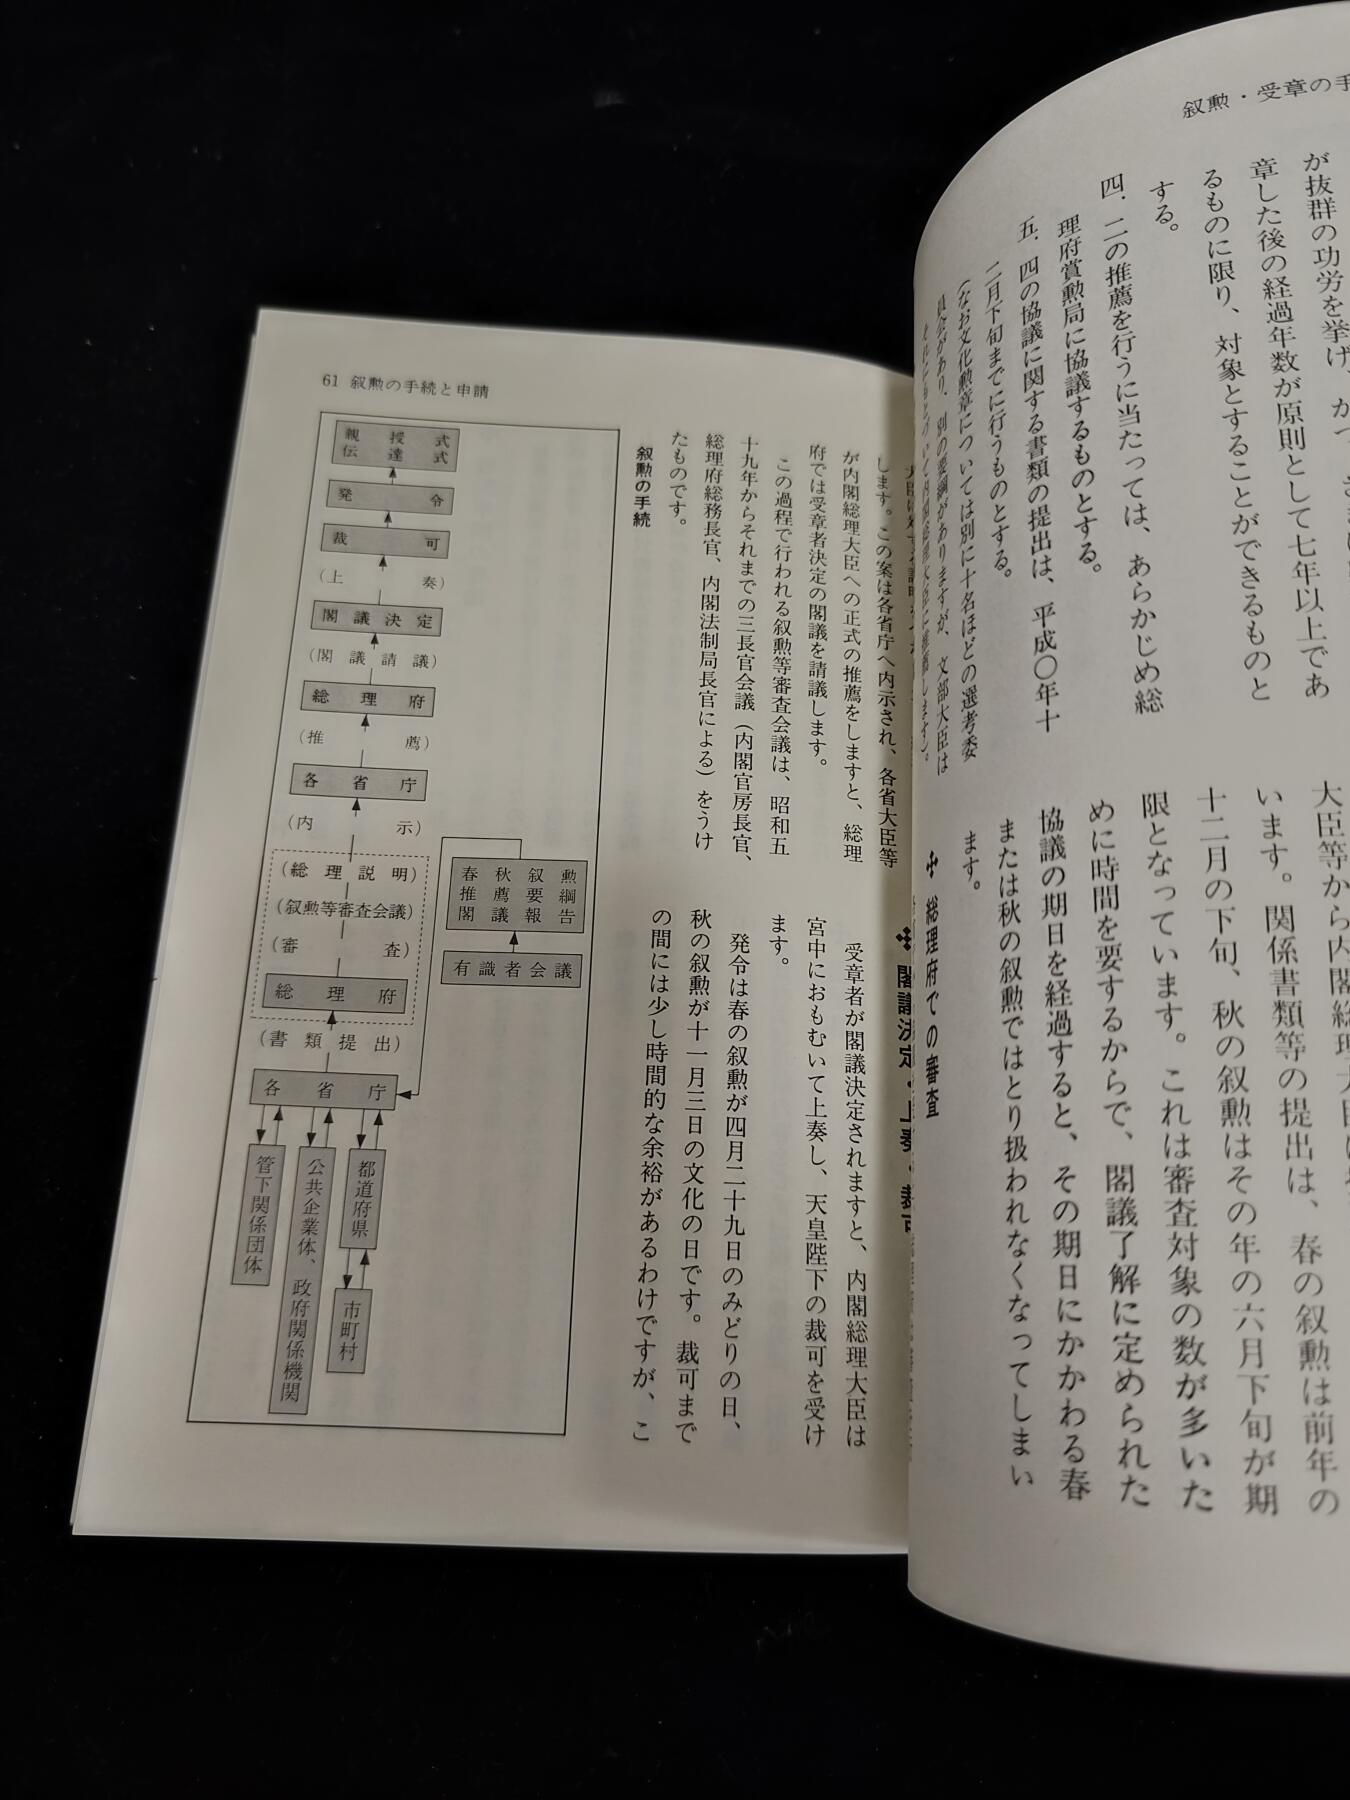 叙勲・受章の手
が抜群の功労を挙げ、かつ、
章した後の経過年数が原則として七年以上であ
るものに限り、対象とすることができるものと
する。
四、二の推薦を行うに当たっては、あらかじめ総
理府賞勲局に協議するものとする。
五、四の協議に関する書類の提出は、平成〇年十
二月下旬までに行うものとする。
(なお文化勲章については別に十名ほどの選考委
員会があり、別の要綱がありますが、文部大臣は
それにもとづいて内閣総理大臣に推薦します)。
大臣等から内閣総理大臣に
います。関係書類等の提出は、春の叙勲は前年の
十二月の下旬、秋の叙勲はその年の六月下旬が期
限となっています。これは審査対象の数が多いた
めに時間を要するからで、閣議了解に定められた
協議の期日を経過すると、その期日にかかわる春
または秋の叙勲ではとり扱われなくなってしまい
ます。
総理府での審査
61 叙勲の手続と申請
します。この案は各省庁へ内示され、各省大臣等
が内閣総理大臣への正式の推薦をしますと、総理
府では受章者決定の閣議を請議します。
この過程で行われる叙勲等審査会議は、昭和五
十九年からそれまでの三長官会議(内閣官房長官、
総理府総務長官、内閣法制局長官による)をうけ
たものです。
閣議決定・上奏・裁可
受章者が閣議決定されますと、内閣総理大臣は
宮中におもむいて上奏し、天皇陛下の裁可を受け
ます。
発令は春の叙勲が四月二十九日のみどりの日、
秋の叙勲が十一月三日の文化の日です。裁可まで
の間には少し時間的な余裕があるわけですが、こ
叙勲の手続
親授式
伝達式
発令
裁可
(上奏)
閣議決定
(閣議請議)
総理府
(推薦)
各省庁
(内示)
(総理説明)
(叙勲等審査会議)
(審査)
総理府
(書類提出)
各省庁
春秋叙勲
推薦要綱
閣議報告
有識者会議
都道府県
市町村
公共企業体、政府関係機関
管下関係団体